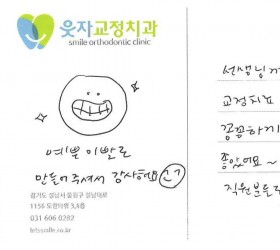 웃자교정치과
smile orthodontic clinic
예쁜 이빨로
만들어주셔서 감사해요
경기도 성남시 중원구 성남대로
1156 도련타워 3,4층
031 606 0282
letssmile.co.kr
선생님께
교정치료
꼼꼼하게
좋았어요~
직원분들도